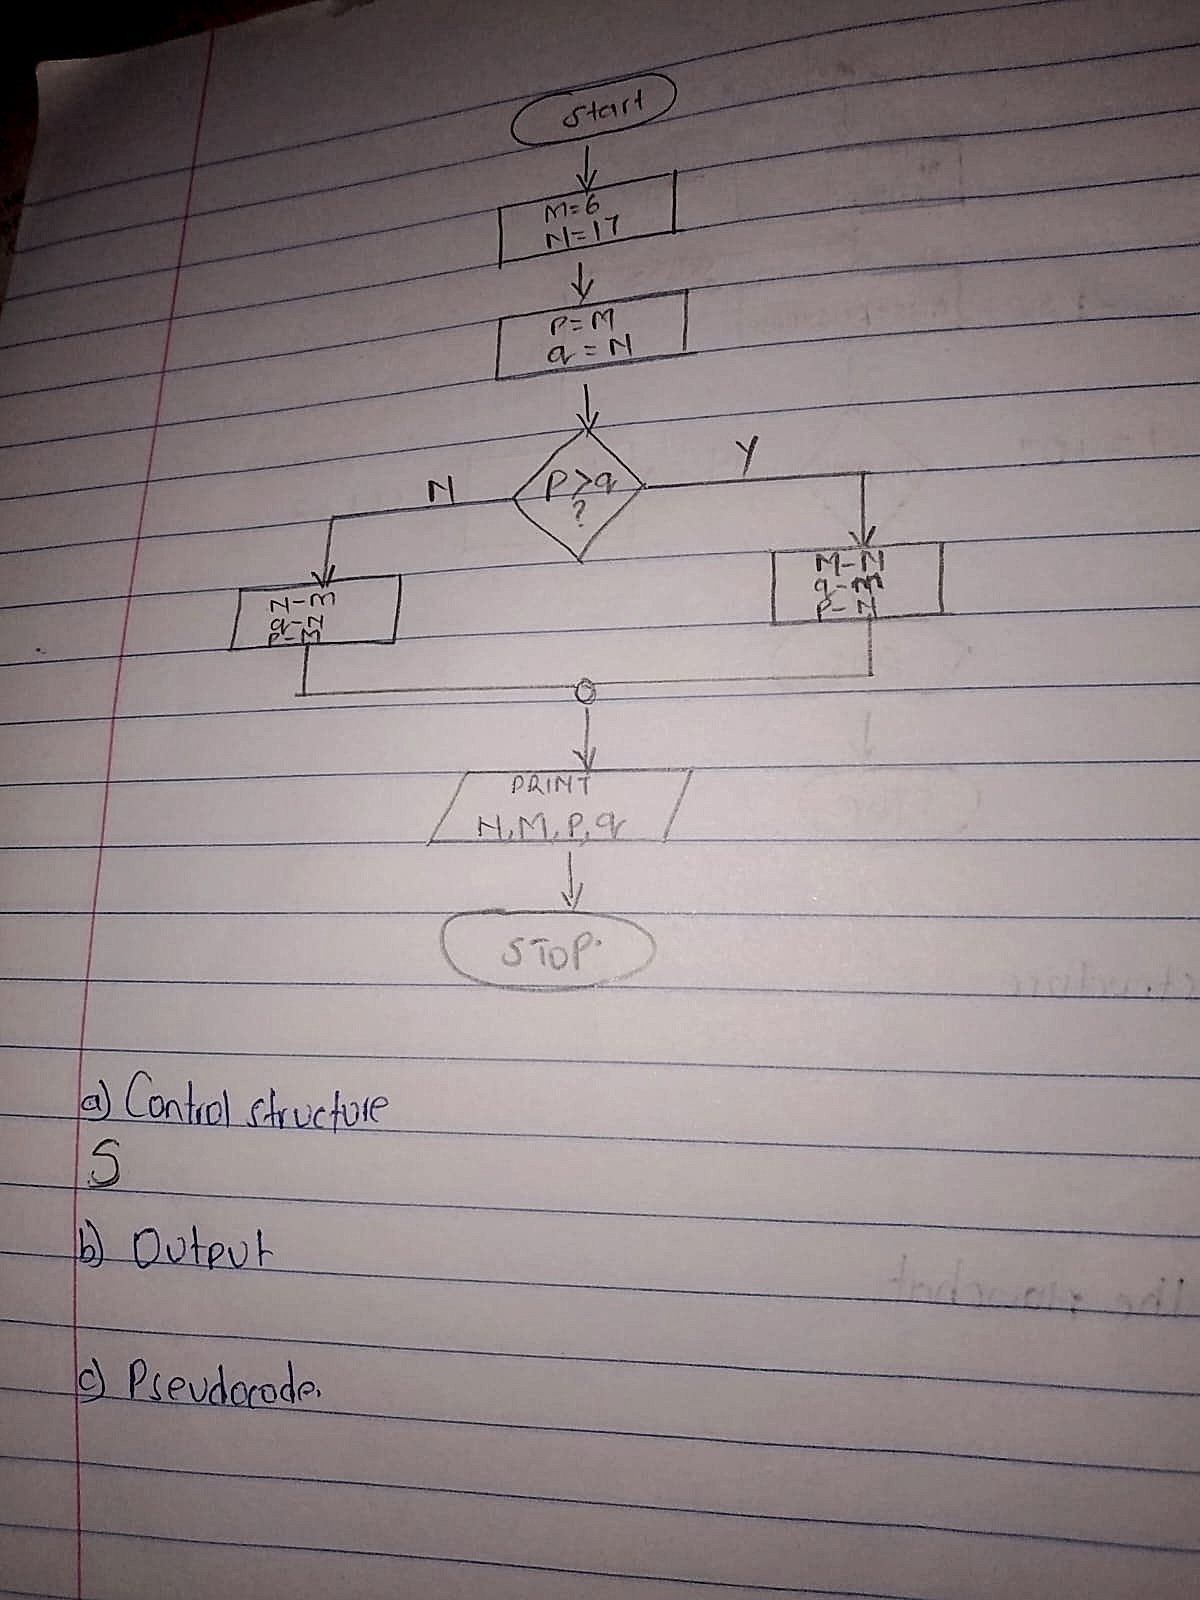 Start
M=6
N=17
P=M
q=N
P>q
?
N
Y
N-M
q-N
P-M
M-N
q-m
P-N
PRINT
N,M,P,q
STOP.
a) Control structure
S
b) Output
c) Pseudocode.